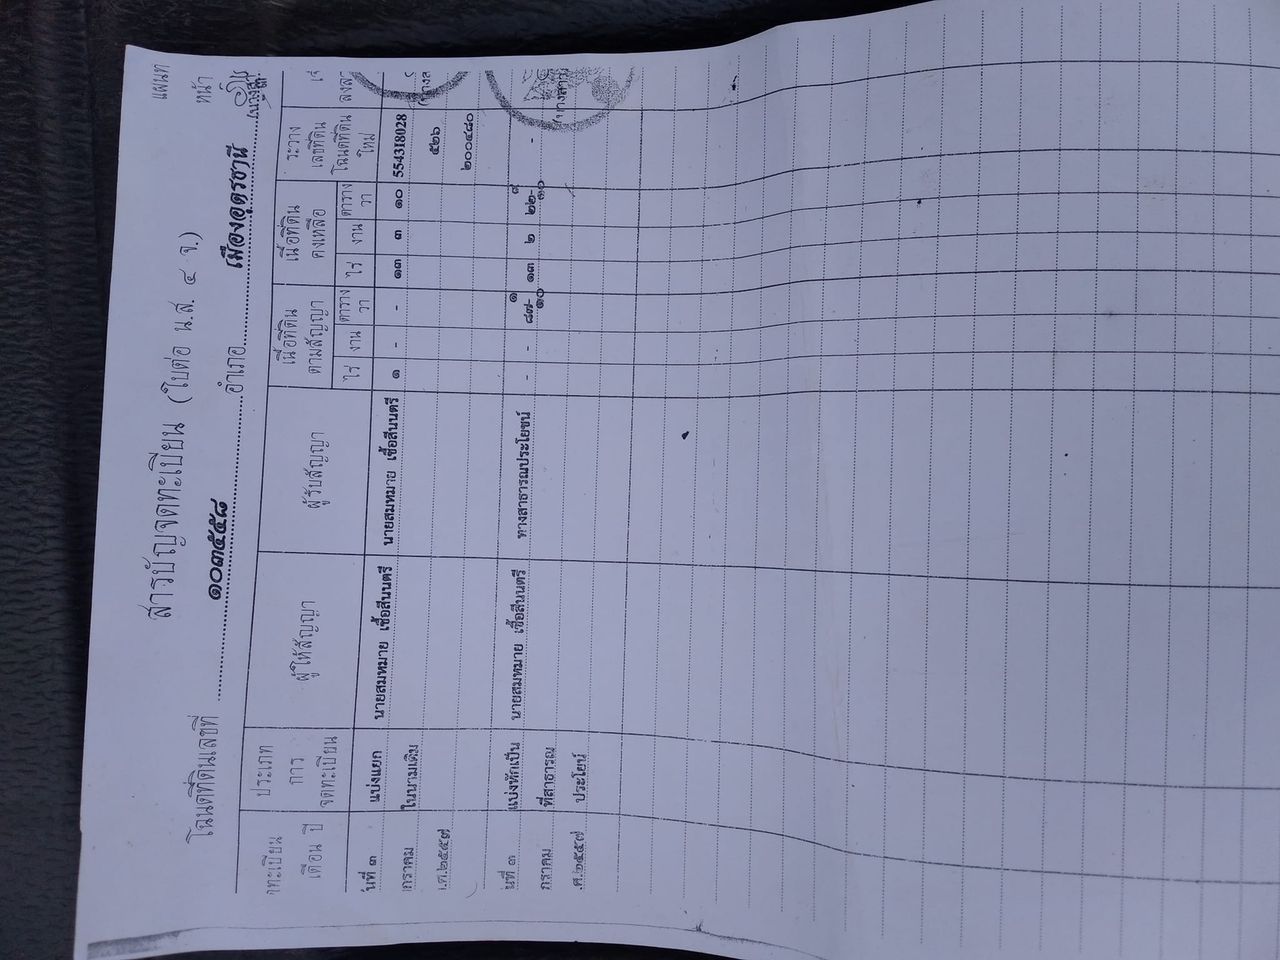 แผ่นที่
สารบัญจดทะเบียน (ใบต่อ น.ส. ๔ จ.)
หน้า
โฉนดที่ดินเลขที่ ๑๐๓๕๕๘ อำเภอ เมืองอุดรธานี
ดทะเบียน
เดือน ปี
ประเภท
การ
จดทะเบียน
ผู้ให้สัญญา
ผู้รับสัญญา
เนื้อที่ดิน
ตามสัญญา
ไร่ งาน ตาราง
วา
เนื้อที่ดิน
คงเหลือ
ไร่ งาน ตาราง
วา
ระวาง
เลขที่ดิน
โฉนดที่ดิน
ใหม่
นที่ ๓ แบ่งแยก นายสมหมาย เชื้อสีนนตรี นายสมหมาย เชื้อสีนนตรี ๑ - - ๑๓ ๓ ๑๐ 5543I8028
กราคม ในนามเดิม ๕๒๖
.ศ.๒๕๕๗ ๒๐๐๔๘๐
นที่ ๓ แบ่งหักเป็น นายสมหมาย เชื้อสีนนตรี ทางสาธารณประโยชน์ - - ๘๗-๑/๑๐ ๑๓ ๒ ๒๒-๙/๑๐ -
กราคม ที่สาธารณ
ศ.๒๕๕๗ ประโยชน์